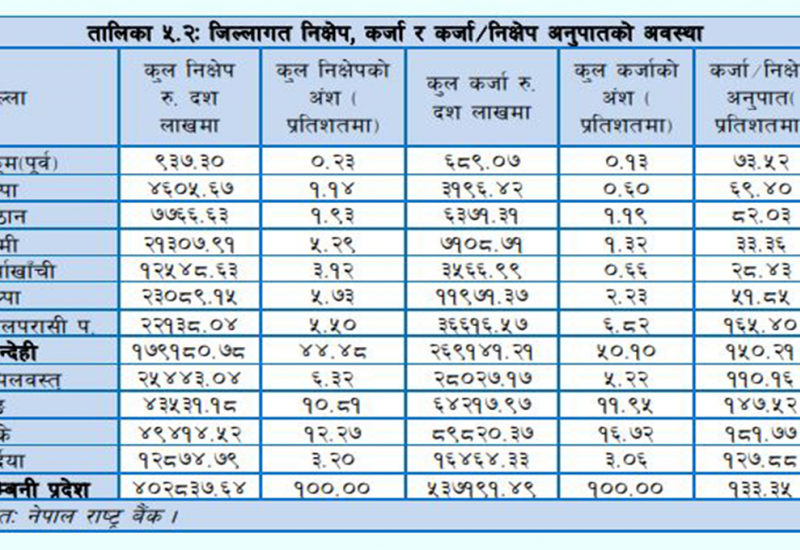 तालिका ५.२: जिल्लागत निक्षेप, कर्जा र कर्जा/निक्षेप अनुपातको अवस्था
ल्ला कुल निक्षेप रु. दश लाखमा कुल निक्षेपको अंश ( प्रतिशतमा) कुल कर्जा रु. दश लाखमा कुल कर्जाको अंश ( प्रतिशतमा) कर्जा/निक्षे अनुपात(
म(पूर्व) ९३७.३० ०.२३ ६८९.०७ ०.१३ ७३.५२
पा ४६०५.६७ १.१४ ३१९६.४२ ०.६० ६९.४०
ठान ७७६६.६३ १.९३ ६३७१.३१ १.१९ ८२.०३
मी २१३०७.९१ ५.२९ ७१०८.७१ १.३२ ३३.३६
र्घाखाँची १२५४८.६३ ३.१२ ३५६६.९९ ०.६६ २८.४३
पा २३०८९.१५ ५.७३ ११९७१.३७ २.२३ ५१.८५
लपरासी प. २२१३८.०४ ५.५० ३६६१६.५७ ६.८२ १६५.४०
न्देही १७९१८०.७८ ४४.४८ २६९१४१.२१ ५०.१० १५०.२१
पिलवस्तु २५४४३.०४ ६.३२ २८०२७.१७ ५.२२ ११०.१६
४३५३१.१८ १०.८१ ६४२१७.९७ ११.९५ १४७.५२
के ४९४१४.५२ १२.२७ ८९८२०.३७ १६.७२ १८१.७७
र्दिया १२८७४.७९ ३.२० १६४६४.३३ ३.०६ १२७.८८
म्बिनी प्रदेश ४०२८३७.६४ १००.०० ५३७१९१.४९ १००.०० १३३.३५
त: नेपाल राष्ट्र बैंक ।